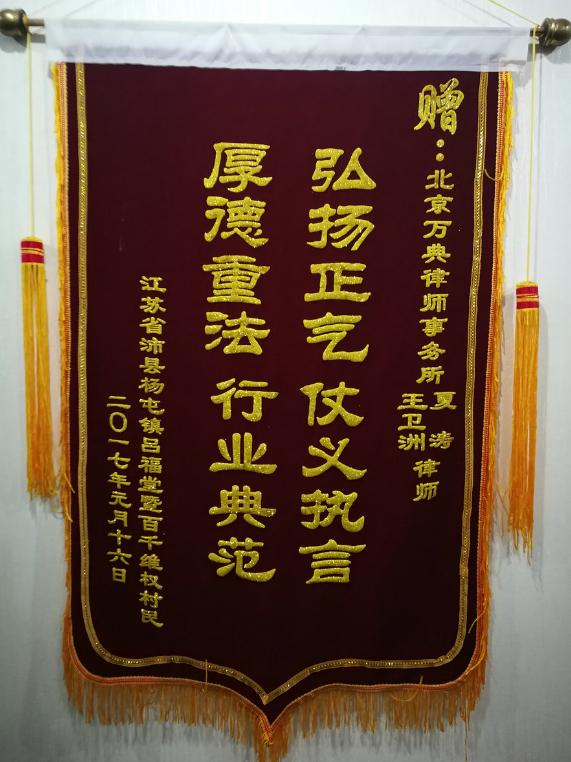 赠：北京万典律师事务所夏涛 王卫洲 律师
弘扬正气 仗义执言
厚德重法 行业典范
江苏省沛县杨屯镇吕福堂暨百千维权村民
二〇一七年元月十六日